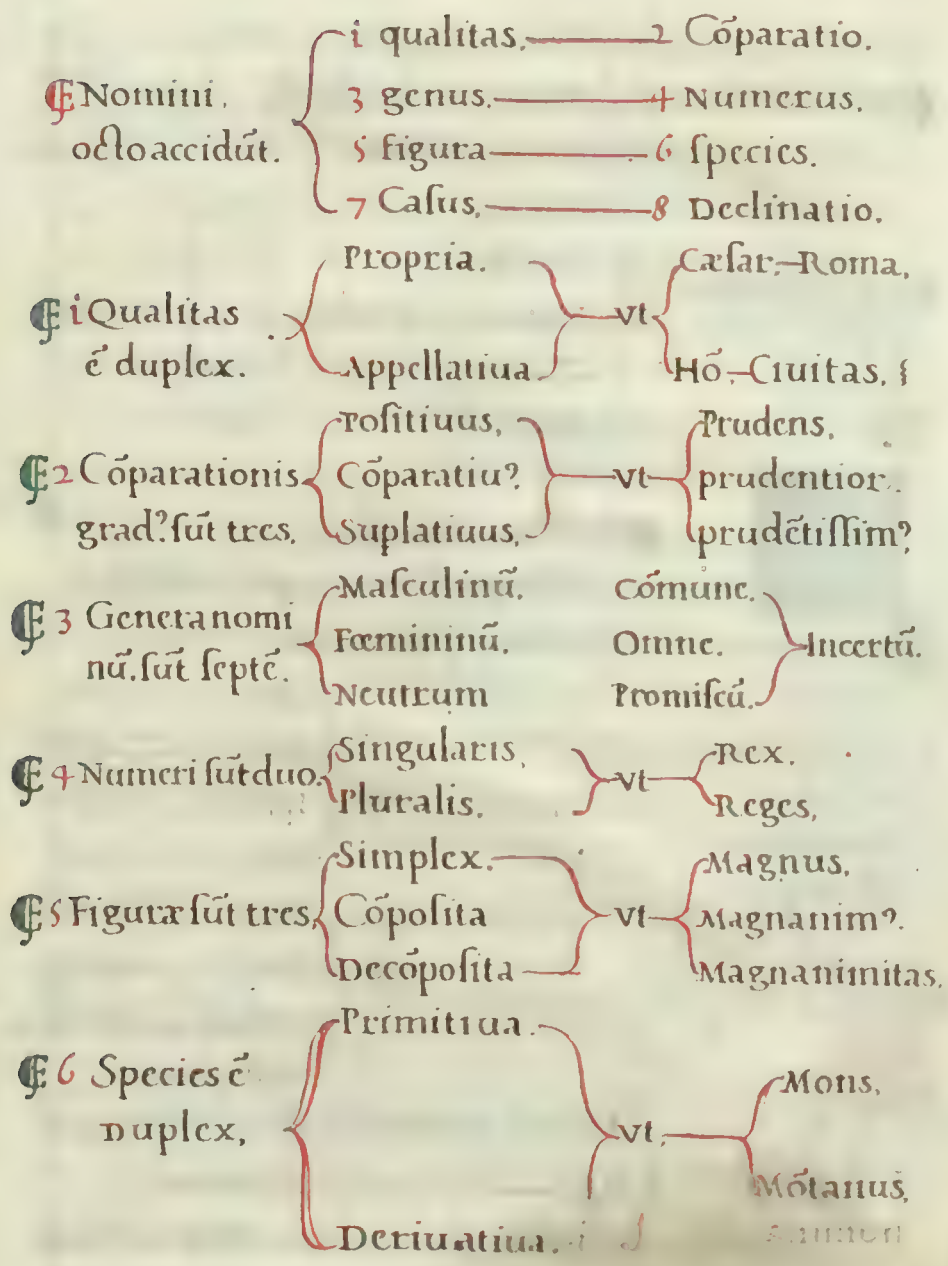 Nomini.
octo accidūt.
i qualitas. 2 Cōparatio.
3 genus. 4 Numerus.
5 figura 6 ſpecies.
7 Caſus. 8 Declinatio.
i Qualitas
ē duplex.
Propria.
Appellatiua
vt
Cæſar. Roma.
Hō. Ciuitas.
2 Cōparationis
grad? ſūt tres.
Poſitiuus,
Cōparatiu?
Suplatiuus,
vt
Prudens,
prudentior.
prudētiſſim?
3 Genera nomi
nū. ſūt ſeptē.
Maſculinū.
Fœmininū.
Neutrum
Cōmune.
Omne.
Promiſcū.
Incertū.
4 Numeri ſūt duo.
Singularis,
Pluralis.
vt
Rex.
Reges,
5 Figuræ ſūt tres,
Simplex.
Cōpoſita
Decōpoſita
vt
Magnus,
Magnanim?.
Magnanimitas.
6 Species ē
Duplex,
Primitiua.
Deriuatiua.
vt.
Mons,
Mōtanus,